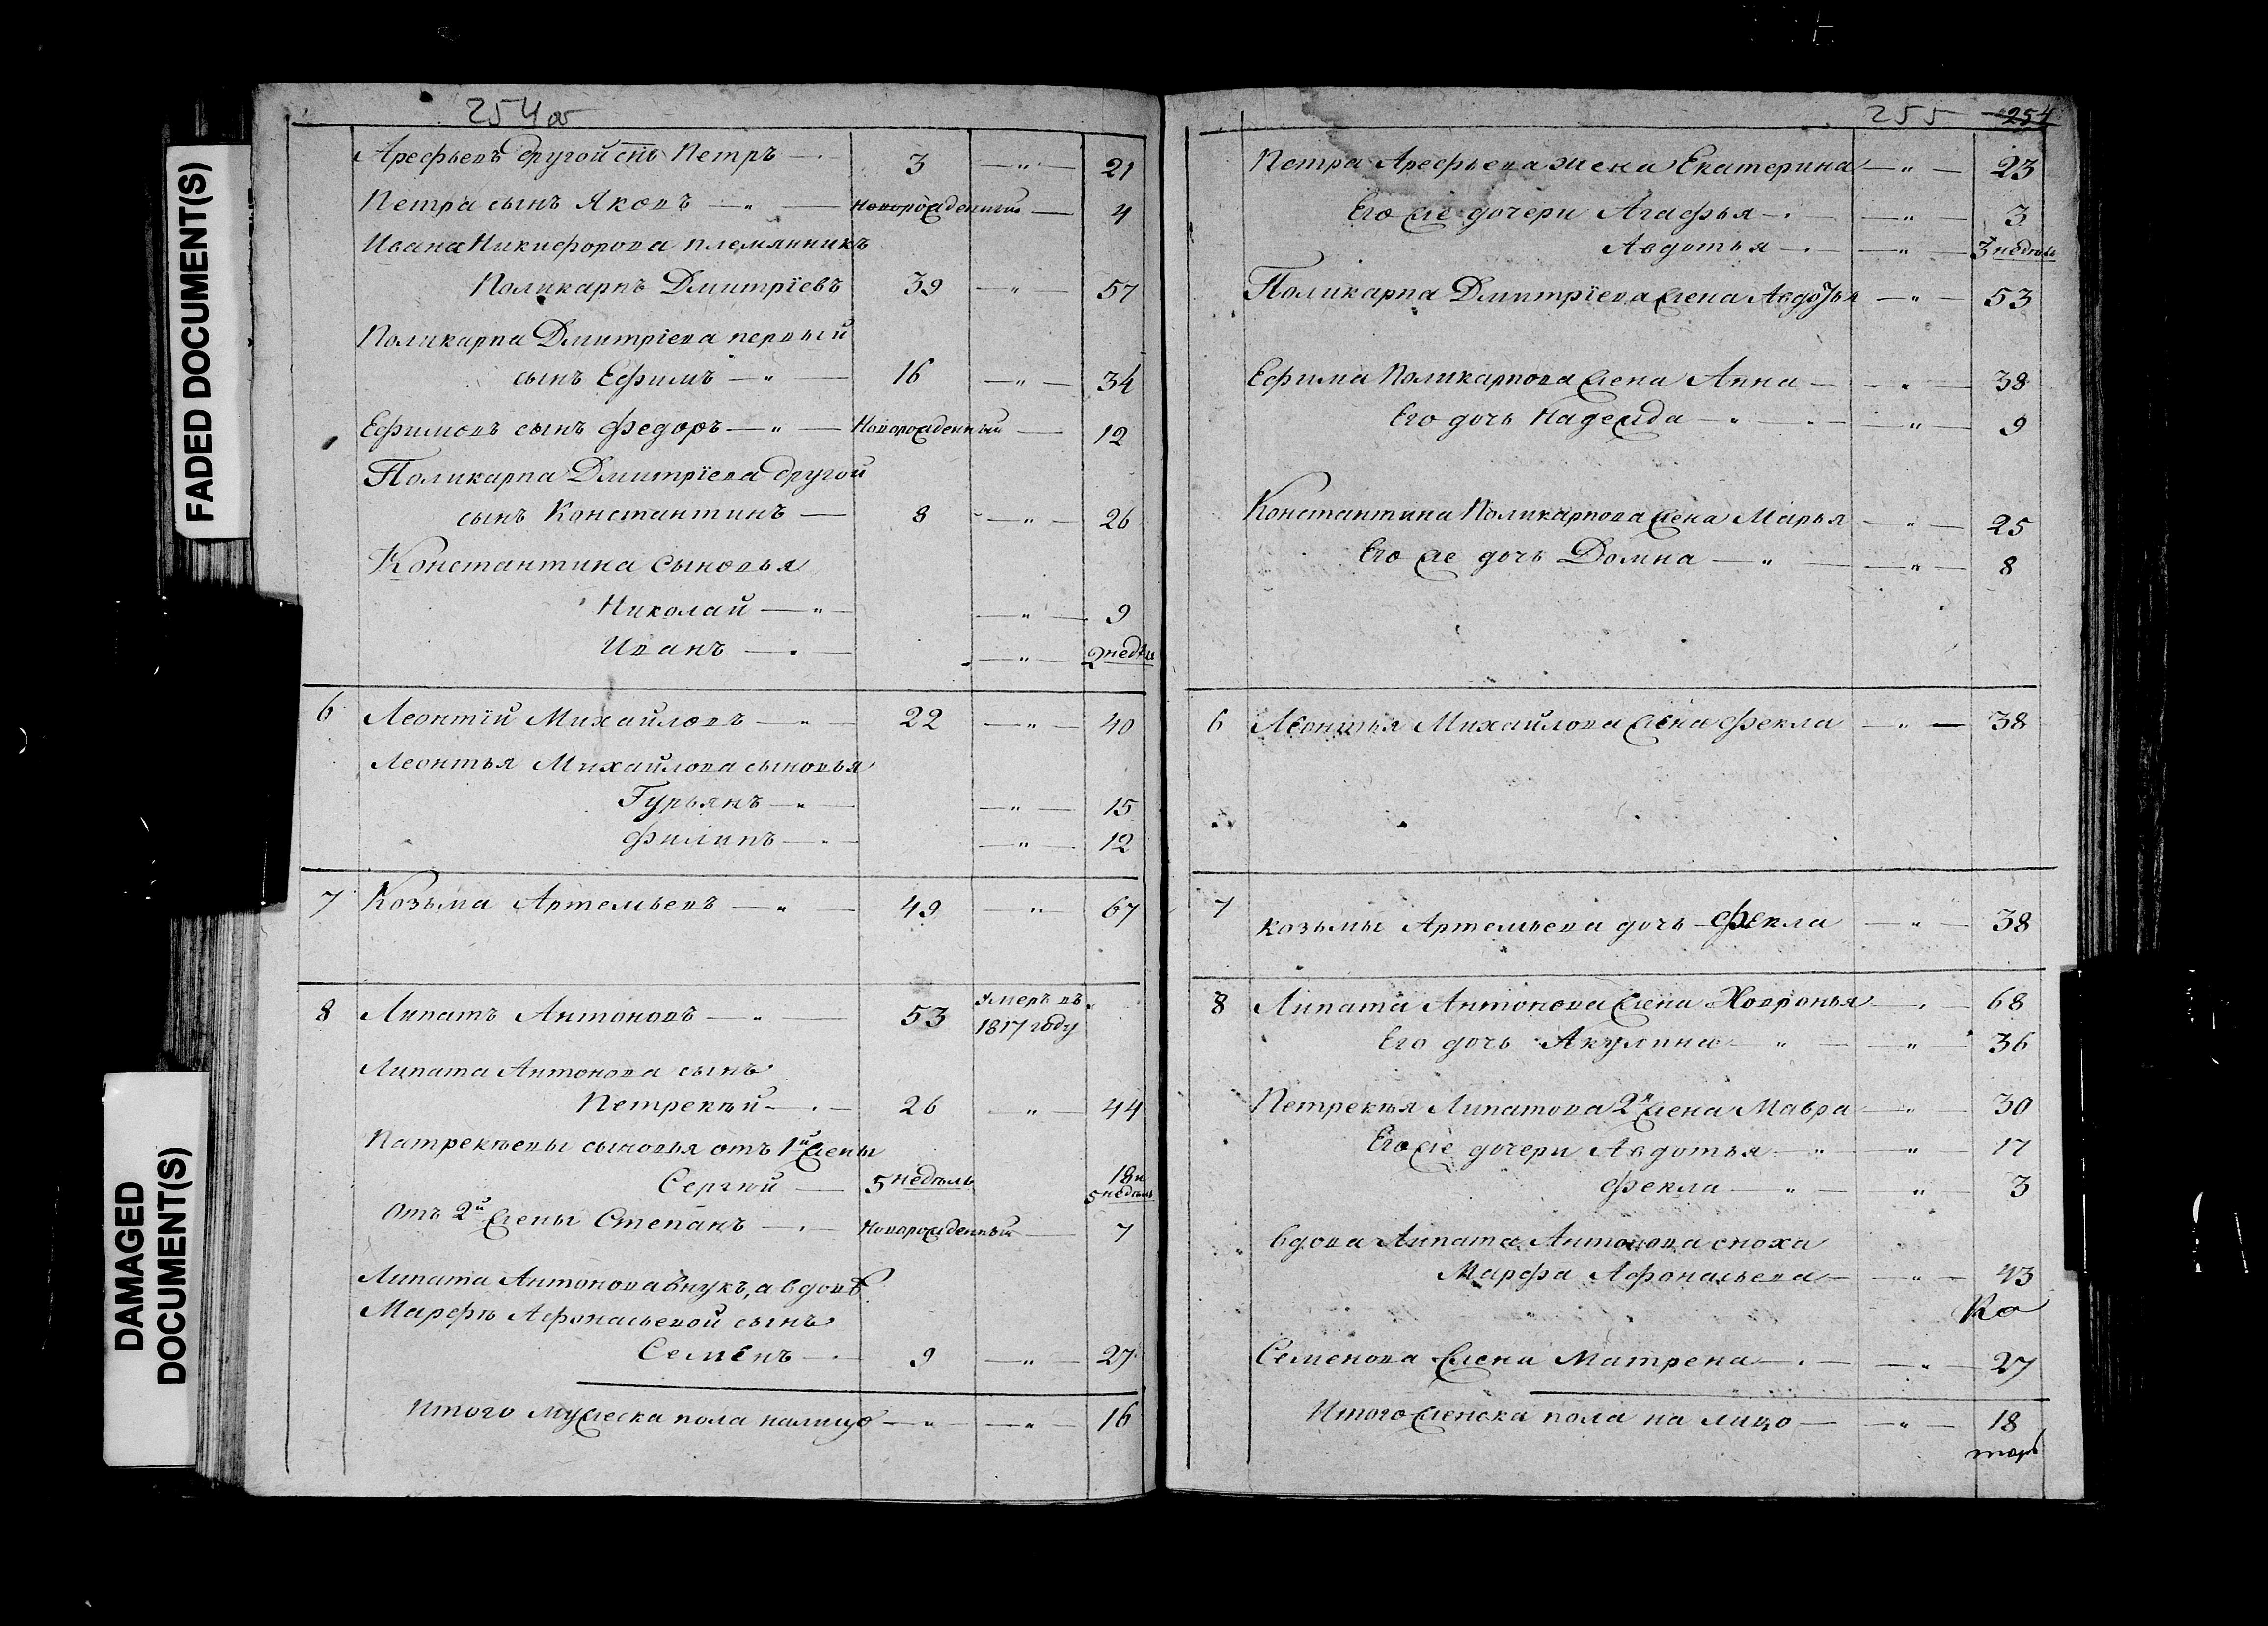 FADED DOCUMENT(S)
DAMAGED
DOCUMENT(S)
254 об
Арефьевъ другой снъ Петръ — 3 — " — 21
Петра сынъ Яковъ — " — новорожденный — 4
Ивана Никифорова племянникъ
Поликарпъ Дмитрїевъ 39 — " — 57
Поликарпа Дмитрїева первый
сынъ Ефимъ — " — 16 — " — 34
Ефимовъ сынъ Федоръ — " — Новорожденный — 12
Поликарпа Дмитрїева другой
сынъ Константинъ — 8 — " — 26
Константина сыновья
Николай — " — — " — 9
Иванъ — " — — " — 2 недѣли
6 Леонтїй Михайловъ — " — 22 — " — 40
Леонтья Михайлова сыновья
Гурьянъ — " — — " — 15
Филипъ — " — — " — 12
7 Козьма Артемьевъ — " — 49 — " — 67
8 Липатъ Антоновъ — " — 53 умеръ въ
1817 году
Липата Антонова сынъ
Петрекѣй — " — 26 — " — 44
Патрекѣевы сыновья отъ 1й жены
Сергѣй — 5 недѣль 18 и
5 недѣль
Отъ 2й жены Степанъ — " — Новорожденный — 7
Липата Антонова внукъ, а вдовѣ
Марфѣ Афонасьевой сынъ
Семенъ — " — 9 — " — 27
Итого мужеска пола налицо — " — — " — 16
255 254
Петра Арефьева жена Екатерина — " — 23
Его же дочери Агафья — " — — " — 3
Авдотья — " — — " — 3 недѣль
Поликарпа Дмитрїева жена Авдотья — " — 53
Ефима Поликарпова жена Анна — — " — 38
Его дочь Надежда — " — — " — 9
Константина Поликарпова жена Марья — " — 25
Его же дочь Домна — " — — " — 8
6 Леонтья Михайлова жена Фекла — " — 38
7 козьмы Артемьева дочь Фекла — " — 38
8 Липата Антонова жена Ховронья — " — 68
Его дочь Акулина — " — — " — 36
Петрекѣя Липатова 2я жена Мавра — " — 30
Его же дочери Авдотья — " — — " — 17
Фекла — " — — " — 3
вдова Липата Антонова сноха
Марфа Афонасьева — — " — 43
Ко
Семенова жена Матрена — " — — " — 27
Итого женска пола на лицо — — " — 18